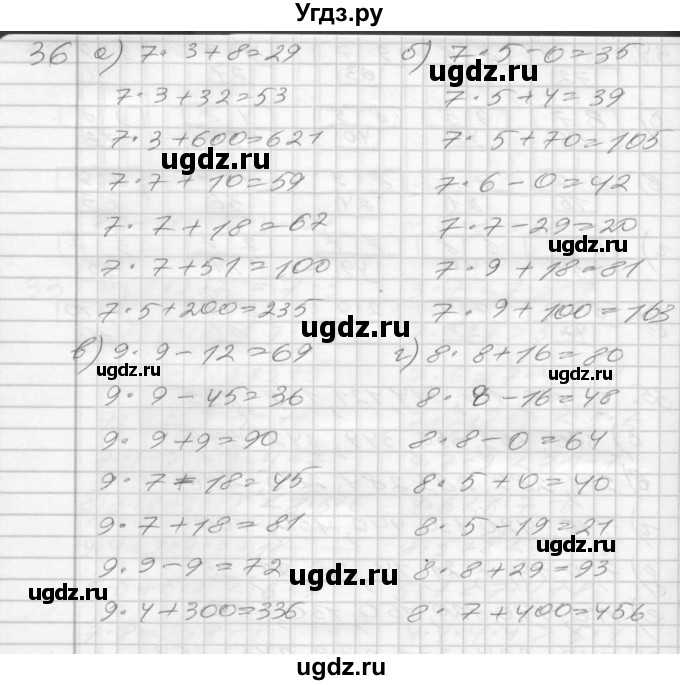 Угдз.ру
36 а) 7·3+8=29
7·3+32=53
7·3+600=621
7·7+10=59
7·7+18=67
7·7+51=100
7·5+200=235
б) 7·5-0=35
7·5+4=39
7·5+70=105
7·6-0=42
7·7-29=20
7·9+18=81
7·9+100=163
в) 9·9-12=69
9·9-45=36
9·9+9=90
9·7-18=45
9·7+18=81
9·9-9=72
9·4+300=336
г) 8·8+16=80
8·8-16=48
8·8-0=64
8·5+0=40
8·5-19=21
8·8+29=93
8·7+400=456
ugdz.ru
ugdz.ru
ugdz.ru
ugdz.ru
ugdz.ru
ugdz.ru
ugdz.ru
ugdz.ru
ugdz.ru
ugdz.ru
ugdz.ru